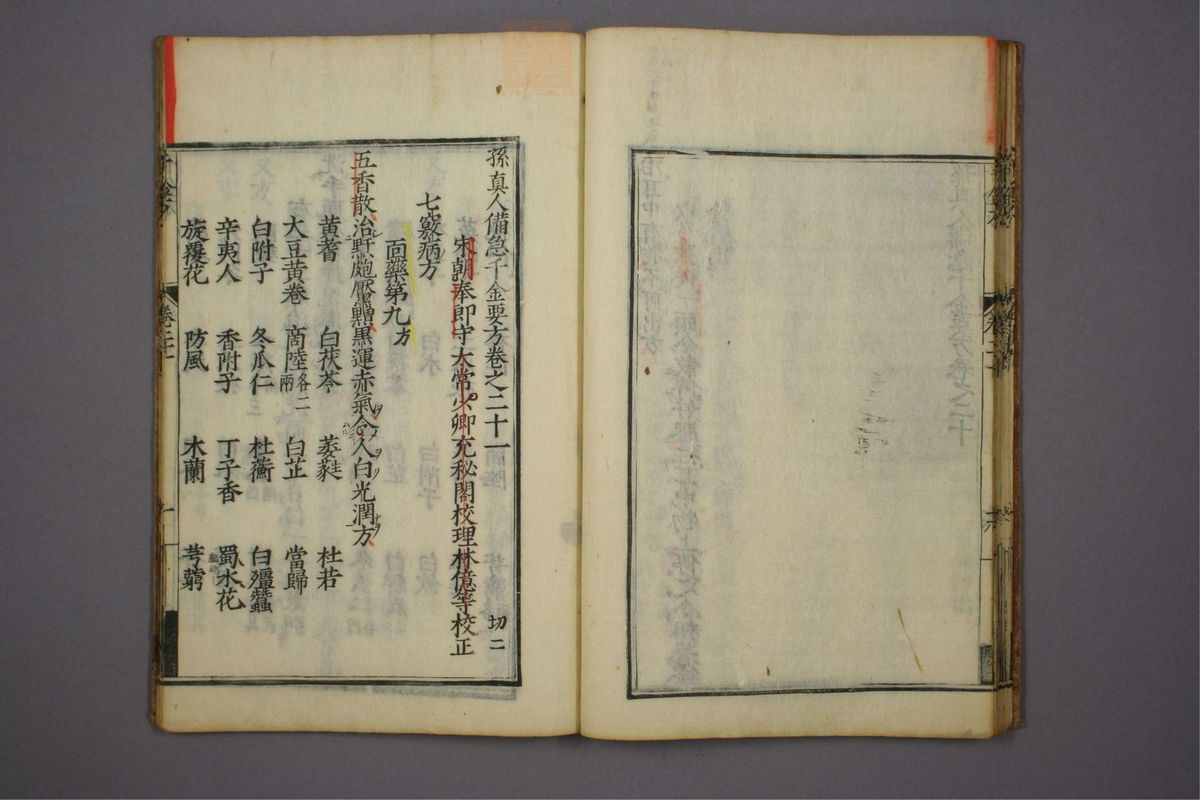 孫真人備急千金要方卷之二十一 切二
宋朝奉郎守太常少卿充秘閣校理林億等校正
七竅病方
面藥第九方
五香散治䵟皰黶䵴黑運赤氣令人白光潤方
黃耆 白茯苓 萎蕤 杜若
大豆黃卷 商陸各二兩 白芷 當歸
白附子 冬瓜仁 杜蘅 白殭蠶
辛夷人 香附子 丁子香 蜀水花
旋覆花 防風 木蘭 芎藭